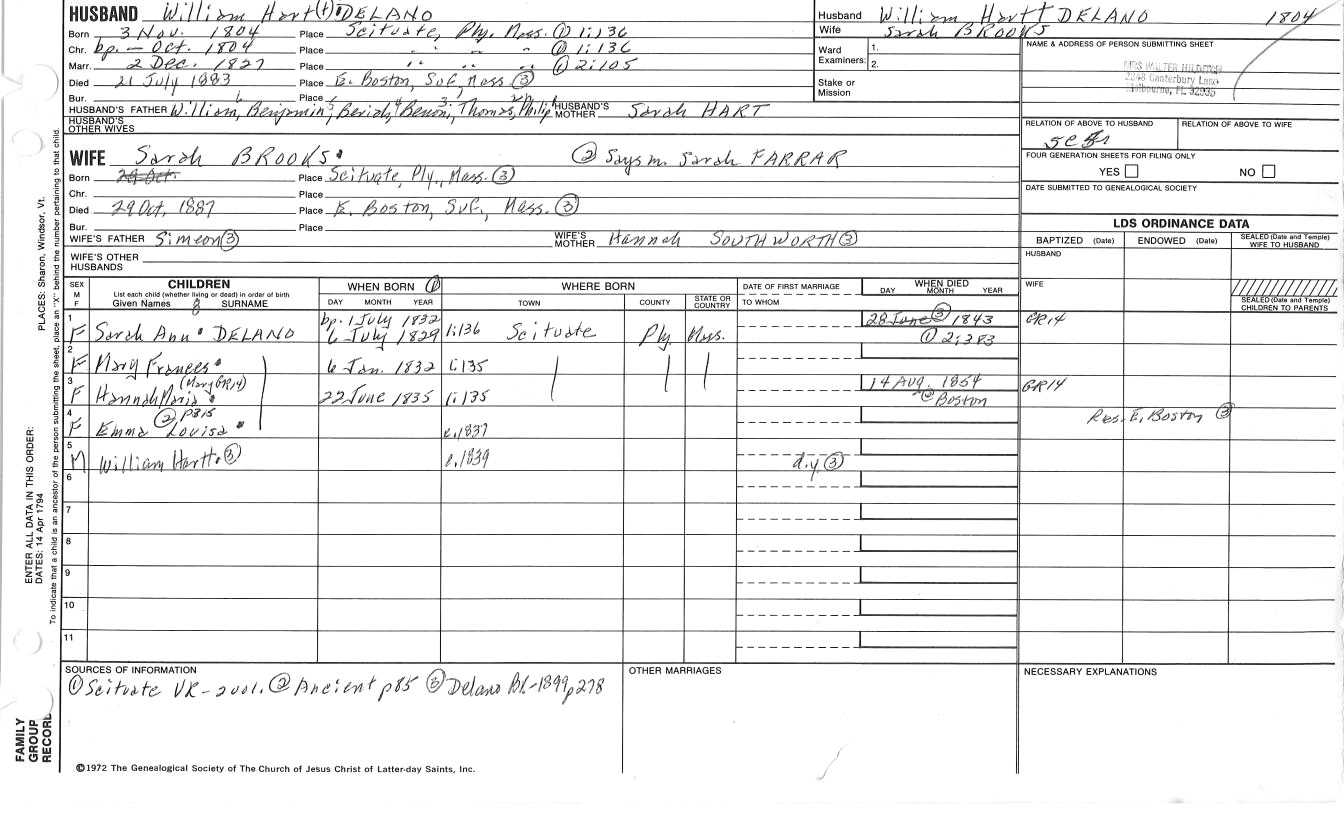 HUSBAND William Hart(t) DELANO
Born 3 Nov. 1804 Place Scituate, Ply. Mass. ① 1:136
Chr. bp. — Oct. 1804 Place " " " ① 1:136
Marr. 2 Dec. 1827 Place " " " ① 2:105
Died 21 July 1883 Place E. Boston, Suf., Mass ③
Bur. Place
HUSBAND'S FATHER William, Benjamin, Beriah, Benoni, Thomas, Philip HUSBAND'S MOTHER Sarah HART
HUSBAND'S OTHER WIVES
WIFE Sarah BROOKS ② Says m. Sarah FARRAR
Born 29 Oct. Place Scituate, Ply., Mass. ③
Chr. Place
Died 29 Oct, 1887 Place E. Boston, Suf., Mass. ③
Bur. Place
WIFE'S FATHER Simeon ③ WIFE'S MOTHER Hannah SOUTHWORTH ③
WIFE'S OTHER HUSBANDS
Husband William Hartt DELANO 1804
Wife Sarah BROOKS
Ward Examiners: 1.
2.
Stake or Mission
NAME & ADDRESS OF PERSON SUBMITTING SHEET
MRS WALTER
2248 Canterbury Lane
Melbourne, FL 32935
RELATION OF ABOVE TO HUSBAND RELATION OF ABOVE TO WIFE
FOUR GENERATION SHEETS FOR FILING ONLY
YES NO
DATE SUBMITTED TO GENEALOGICAL SOCIETY
LDS ORDINANCE DATA
BAPTIZED (Date) ENDOWED (Date) SEALED (Date and Temple) WIFE TO HUSBAND
HUSBAND
WIFE
SEALED (Date and Temple) CHILDREN TO PARENTS
SEX M F
CHILDREN
List each child (whether living or dead) in order of birth
Given Names SURNAME
WHEN BORN ①
DAY MONTH YEAR
WHERE BORN
TOWN COUNTY STATE OR COUNTRY
DATE OF FIRST MARRIAGE
TO WHOM
WHEN DIED
DAY MONTH YEAR
1 bp. 1 July 1832 28 June ③ 1843 GR14
F Sarah Ann DELANO 6 July 1829 1:136 Scituate Ply. Mass. ① 2:383
2
F Mary Frances 6 Jan. 1832 1:135
3 (Mary GR14) 14 Aug. 1854 GR14
F Hannah Maria 22 June 1835 1:135 ② Boston
4 ② p315 Res. E. Boston ③
F Emma Louisa c.1837
5
M William Hartt ③ c.1839 d.y. ③
6
7
8
9
10
11
SOURCES OF INFORMATION
① Scituate VR-2 vol. ② Ancient p85 ③ Delano Bk-1899 p278
OTHER MARRIAGES
NECESSARY EXPLANATIONS
©1972 The Genealogical Society of The Church of Jesus Christ of Latter-day Saints, Inc.
PLACES: Sharon, Windsor, Vt.
ENTER ALL DATA IN THIS ORDER:
DATES: 14 Apr 1794
To indicate that a child is an ancestor of the person submitting the sheet, place an "X" behind the number pertaining to that child.
FAMILY
GROUP
RECORD